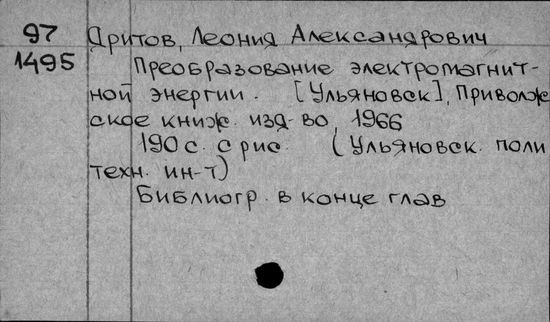 97 Дритов, Леонид Александрович
1495 Преобразование электромагнит-
ной энергии. [Ульяновск], Приволж
ское книж. изд-во, 1966
190 с. с рис. (Ульяновск. поли
техн. ин-т)
Библиогр. в конце глав